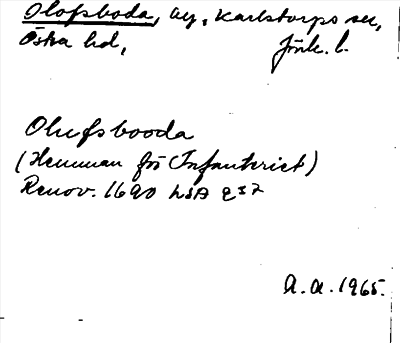 Olofsboda, by, Karlstorps sn,
Östra hd, Jönk. l.
Olufsbooda
(Hemman för Infanteriet)
Renov. 1690 LSA E 37
A. a. 1965.